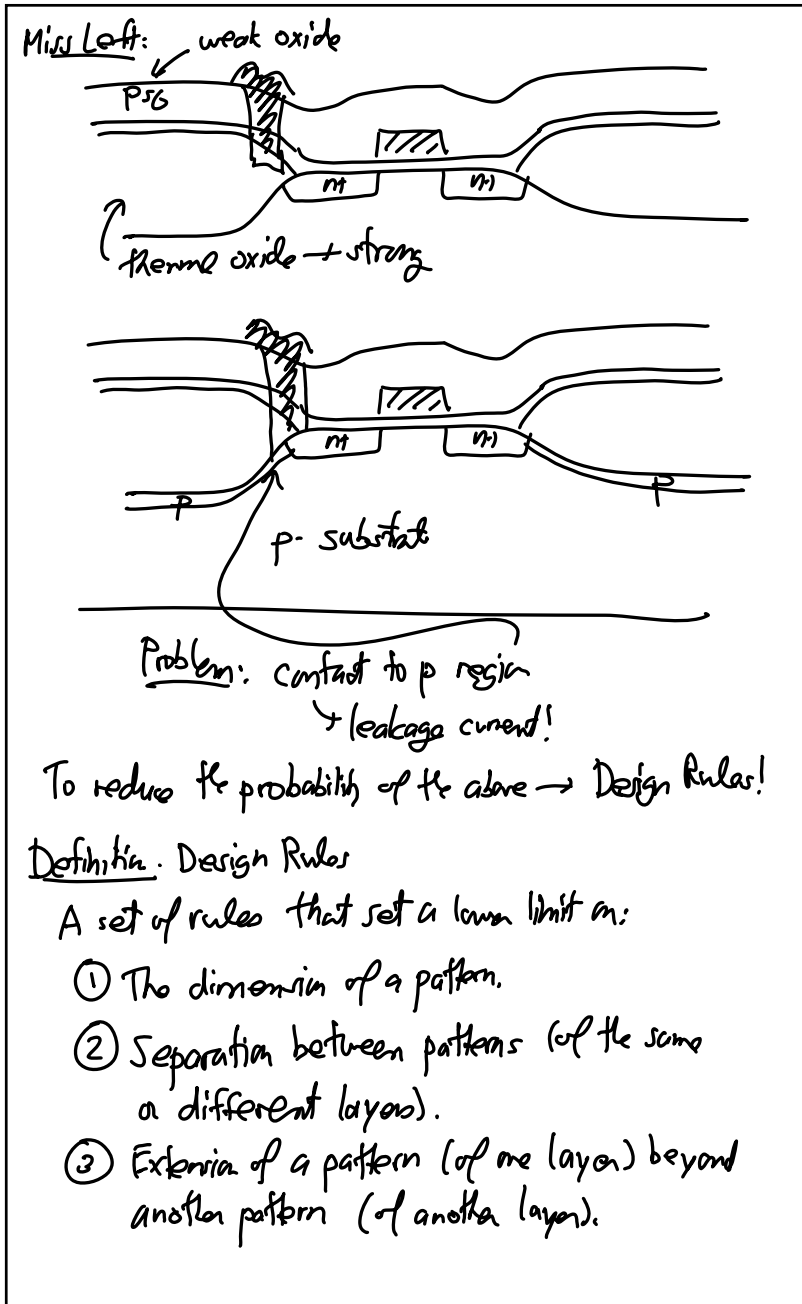 Miss Left: weak oxide
PSG
n+ n+
thermal oxide → strong
n+ n+
p p
p- substrat
Problem: contact to p region
↳ leakage current!
To reduce the probability of the above → Design Rules!
Definition. Design Rules
A set of rules that set a lower limit on:
① The dimension of a pattern.
② Separation between patterns (of the same
or different layers).
③ Extension of a pattern (of one layer) beyond
another pattern (of another layer).